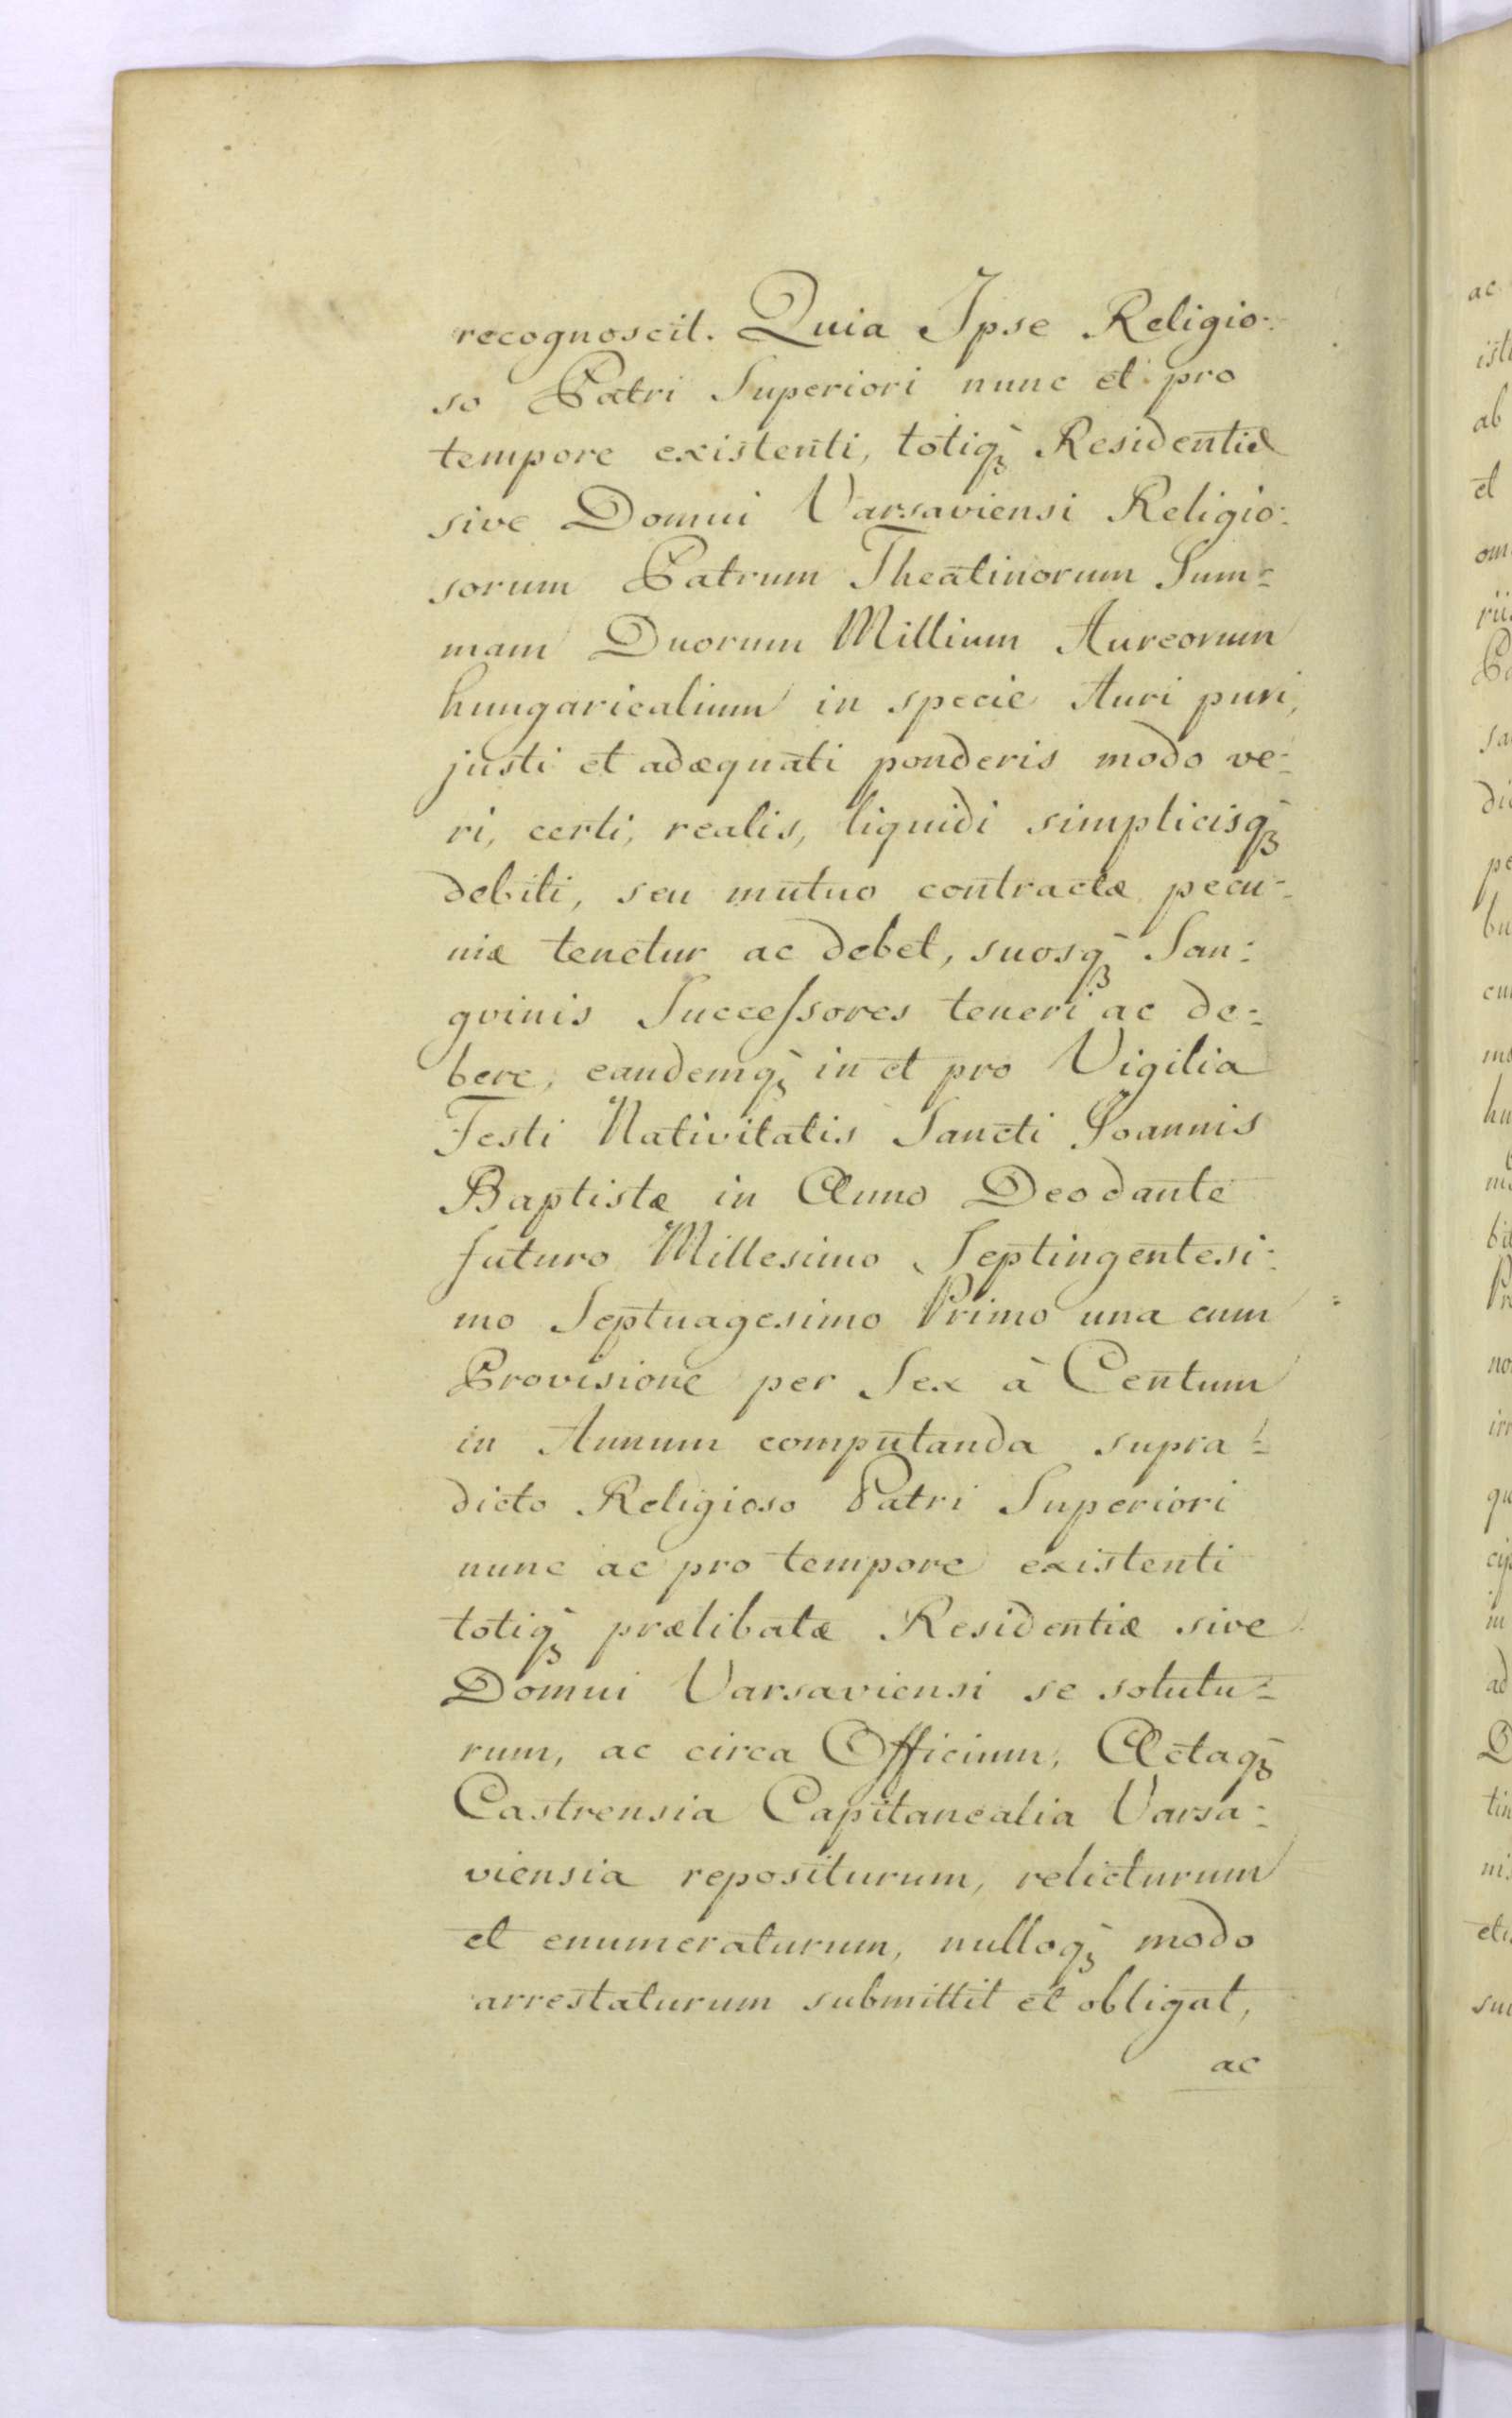 recognoscit. Quia Ipse Religio:
so Patri Superiori nunc et pro
tempore existenti, totiq̀ꝫ Residentiæ
sive Domui Varsaviensi Religio:
sorum Patrum Theatinorum Sum=
mam Duorum Millium Aureorum
hungaricalium in specie Auri puri,
justi et adæquati ponderis modo ve=
ri, certi, realis, liquidi simplicisq̀ꝫ
debiti, seu mutuo contractæ pecu=
niæ tenetur ac debet, suosq̀ꝫ San:
gvinis Succeſsores teneri ac de=
bere, eandemq̀ꝫ in et pro Vigilia
Festi Nativitatis Sancti Joannis
Baptistæ in Anno Deo dante
futuro Millesimo Septingentesi:
mo Septuagesimo Primo una cum
Provisione per Sex à Centum
in Annum computanda supra=
dicto Religioso Patri Superiori
nunc ac pro tempore existenti
totiq̀ꝫ prælibatæ Residentiæ sive
Domui Varsaviensi se solutu=
rum, ac circa Officium, Actaq̀ꝫ
Castrensia Capitanealia Varsa:
viensia repositurum, relicturum
et enumeraturum, nulloq̀ꝫ modo
arrestaturum submittit et obligat,
ac